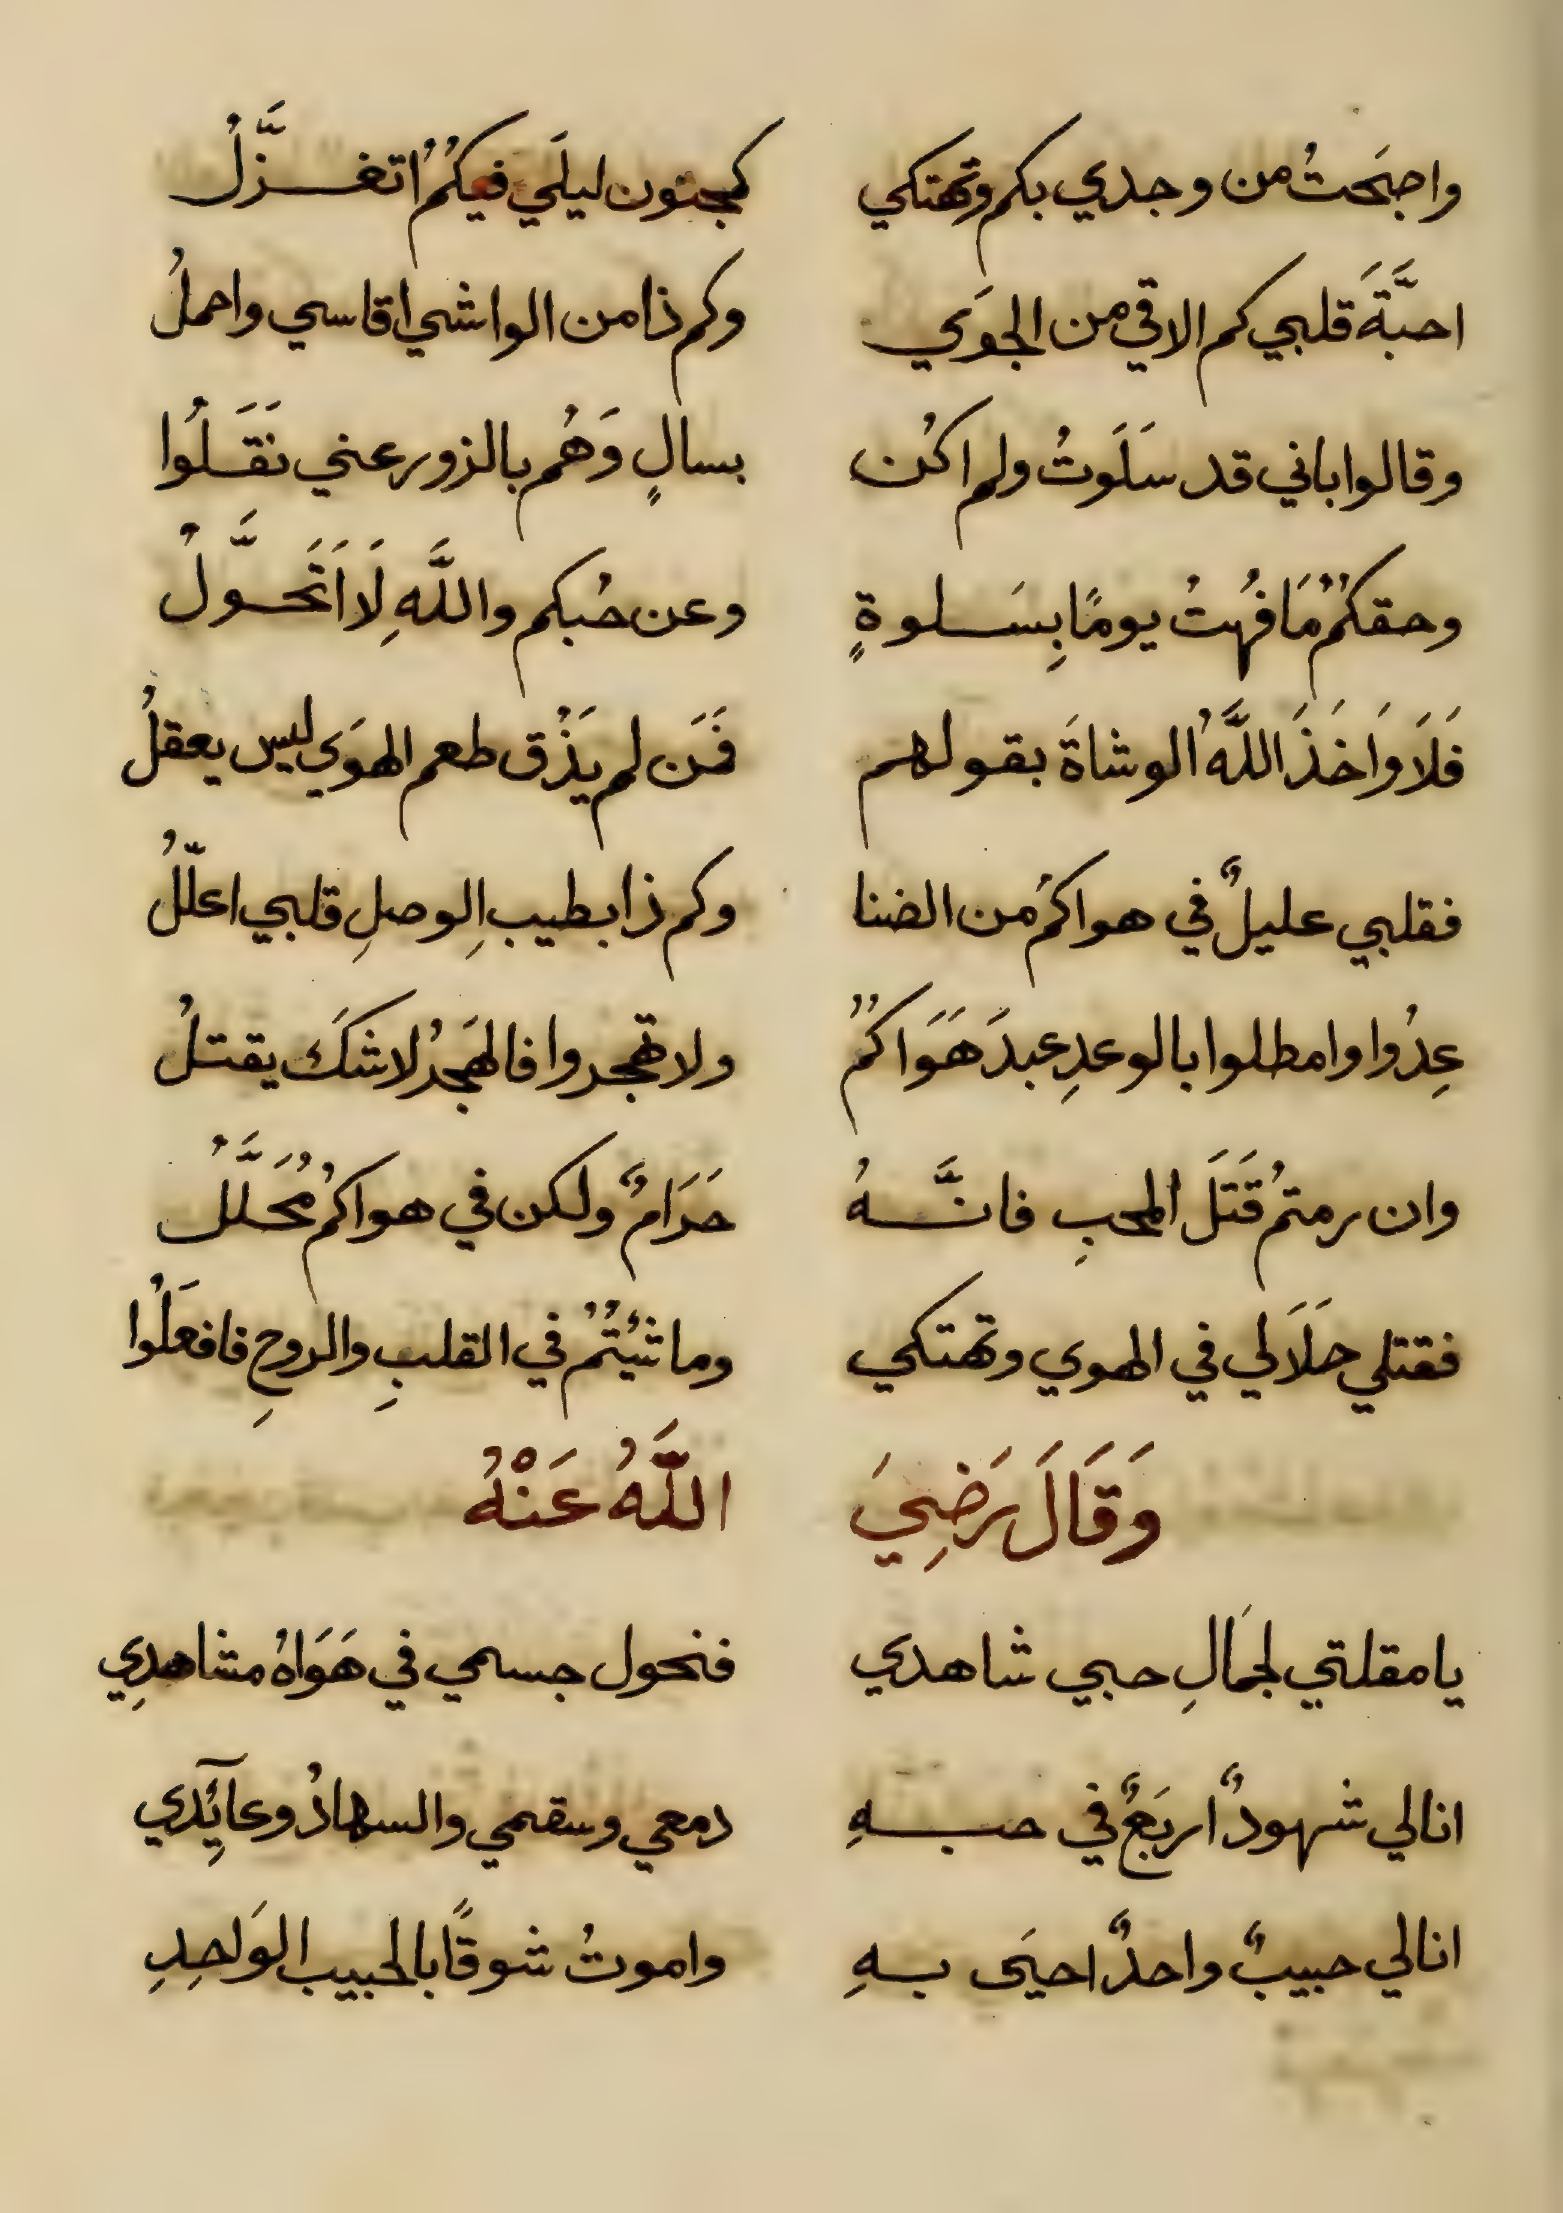 واصبَحتُ من وجدي بكم وتهتكي كمجنون ليلَي فيكُمُ اتغزَّلُ
احبَّةَ قلبي كم الاقي من الجوَي وكم ذا من الواشي اقاسي واحملُ
وقالوا باني قد سَلَوتُ ولم اكُن بسالٍ وَهُم بالزور عني نَقَلُوا
وحقكُمُ مَا فُهتُ يومًا بِسَلوةٍ وعن حُبكم واللَّهِ لَا اَتَحَوَّلُ
فَلَا وَاخَذَ اللَّهُ الوشاةَ بقولهم فَمَن لم يَذُق طعم الهوَي ليس يعقلُ
فقلبي عليلٌ في هواكمُ من الضنا وكم ذا بطيبِ الوصلِ قلبي اعلّلُ
عِدُوا وامطلوا بالوعدِ عبدَ هَوَاكُمُ ولا تهجروا فالهَجرُ لا شكَ يقتلُ
وان رمتمُ قَتَلَ المحبِ فانَّهُ حَرَامٌ ولكن في هواكمُ مُحَلَّلُ
فقتلي حلَالَي في الهوي وتهتكي وما شئتُمُ في القلبِ والروحِ فافعَلُوا
وَقَالَ رَضِيَ اللَّهُ عَنْهُ
يا مقلتي لجمَالِ حبي شاهدي فنحول جسمي في هَوَاهُ مشاهدِي
انا لي شهودٌ اربَعٌ في حبهِ دمعي وسقمي والسهادُ وعآئِدي
انا لي حبيبٌ واحدٌ احيَى بهِ واموتُ شوقًا بالحبيب الوَاحِدِ